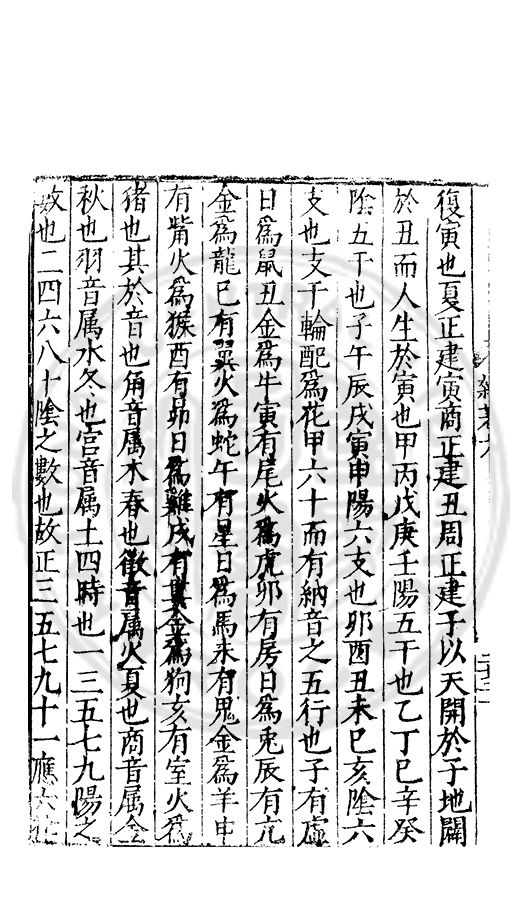 復寅也夏正建寅商正建丑周正建子以天開於子地闢
於丑而人生於寅也甲丙戊庚壬陽五干也乙丁巳辛癸
陰五干也子午辰戌寅申陽六支也卯酉丑未巳亥陰六
支也支干輪配爲花甲六十而有納音之五行也子有虛
日爲鼠丑金爲牛寅有尾火爲虎卯有房日爲兎辰有亢
金爲龍巳有翼火爲蛇午有星日爲馬未有鬼金爲羊申
有觜火爲猴酉有昴日爲雞戌有婁金爲狗亥有室火爲
猪也其於音也角音属木春也徵音属火夏也商音属金
秋也羽音属水冬也宮音属土四時也一三五七九陽之
數也二四六八十陰之數也故正三五七九十一應六